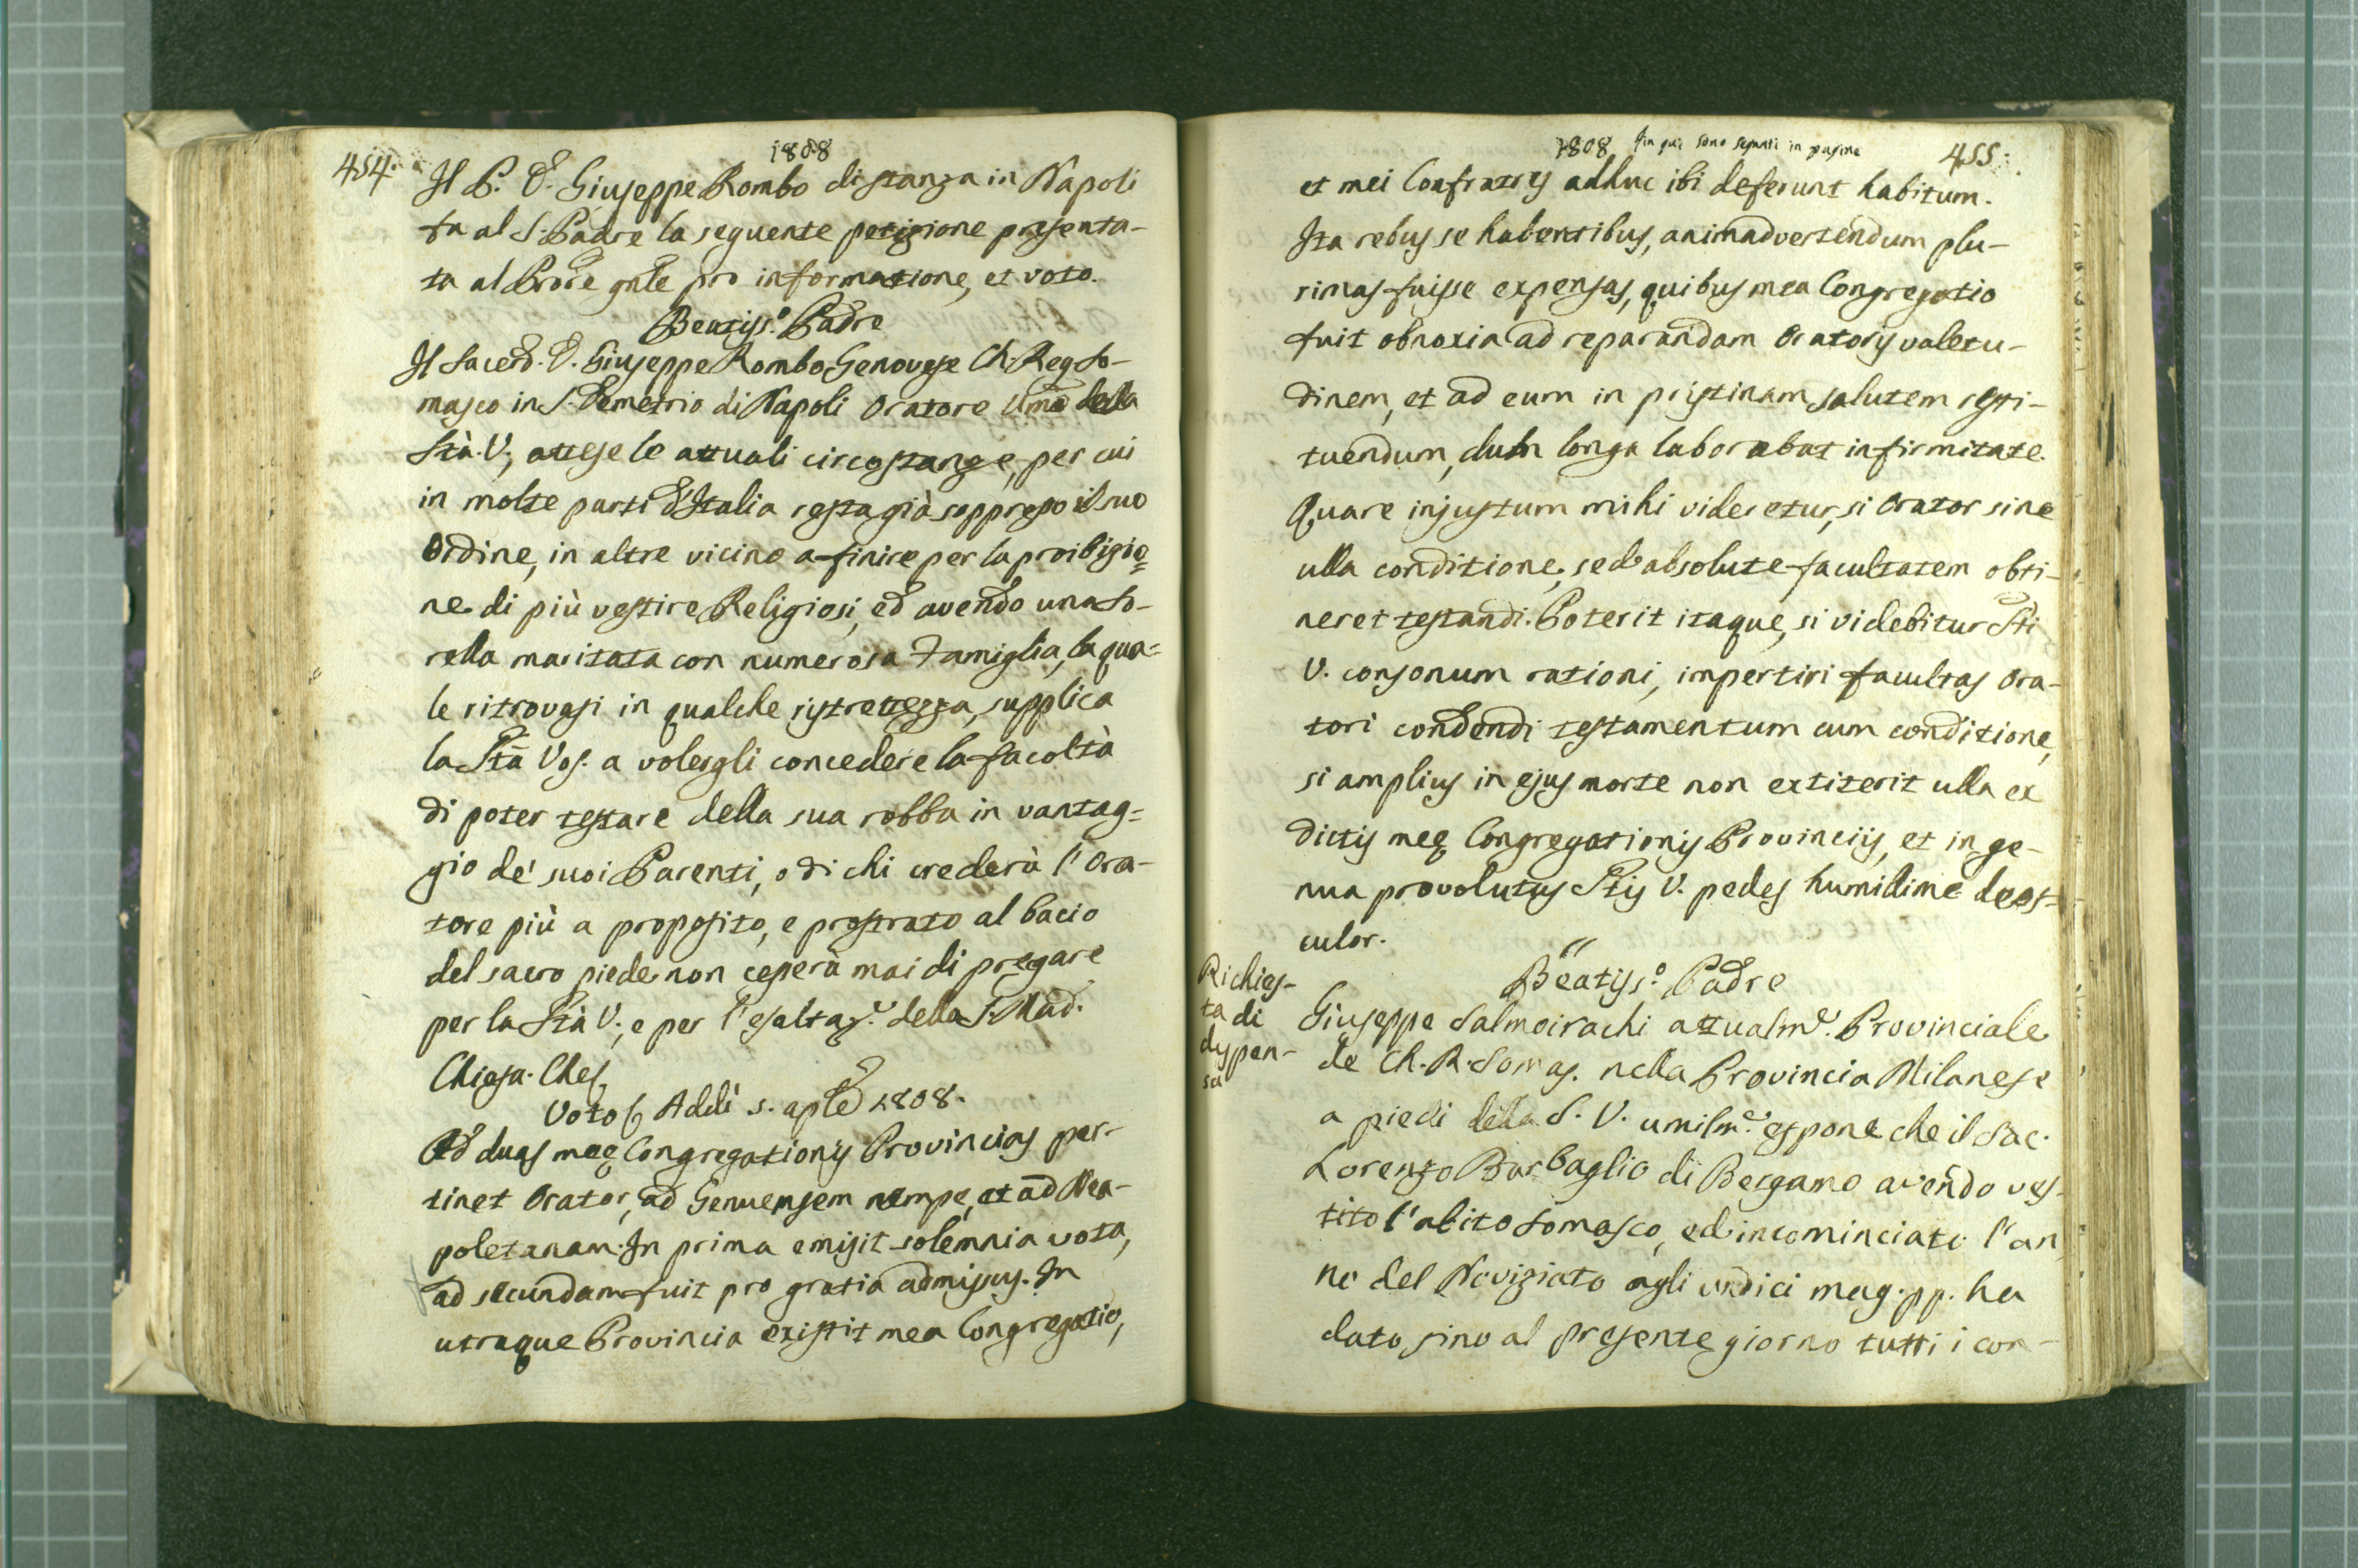 1808
454.
Il P. D. Giuseppe Rombo di stanza in Napoli
fa al S. Padre la seguente petizione presenta-
ta al Prore gnle pro informatione, et voto.
Beatiss.º Padre
Il Sacerd. D. Giuseppe Rombo Genovese Ch. Reg. So-
masco in S. Demetrio di Napoli Oratore Umō della
Stà. V., attese le attuali circostanze, per cui
in molte parti d'Italia resta già soppresso il suo
Ordine, in altre vicino a finire per la proibizio=
ne di più vestire Religiosi, ed avendo una So-
rella maritata con numerosa Famiglia, la qua=
le ritrovasi in qualche ristrettezza, supplica
la Stā Vos. a volergli concedere la facoltà
di poter testare della sua robba in vantag=
gio de' suoi Parenti, o di chi crederà l'Ora-
tore più a proposito, e prostrato al bacio
del sacro piede non cesserà mai di pregare
per la Stà V., e per l'esaltaz.e della S. Mad.
Chiesa. Che
Voto Addì 5. aple 1808.
Ad duas meę Congregationis Provincias per-
tinet Orator, ad Genuensem nempe, et ad Nea-
poletanam. In prima emisit solemnia vota,
ad secundam fuit pro gratia admissus. In
utraque Provincia existit mea Congregatio,
1808 Fin qui sono segnati in pagine
455.
et mei Confratres adhuc ibi deferunt habitum.
Ita rebus se habentibus, animadvertendum plu-
rimas fuisse expensas, quibus mea Congregatio
fuit obnoxia ad reparandam Oratoris valetu-
dinem, et ad eum in pristinam salutem resti-
tuendum, dum longa laborabat infirmitate.
Quare injustum mihi videretur, si Orator sine
ulla conditione, sed absolute facultatem obti-
neret testandi. Poterit itaque, si videbitur Sti
V. consonum rationi, impertiri facultas Ora-
tori condendi testamentum cum conditione,
si amplius in ejus morte non extiterit ulla ex
dictis meę Congregationis Provinciis, et in ge-
nua provolutus Stis V. pedes humilime deos=
culor.
Beatiss.º Padre
Richies-
ta di
dispen-
sa
Giuseppe Salmoirachi attualm.e Provinciale
de Ch. R. Somas. nella Provincia Milanese
a piedi della S. V. umilm.e espone che il Sac.
Lorenzo Barbaglio di Bergamo avendo ves-
tito l'abito Somasco, ed incominciato l'an
no del Noviziato agli undici mag. pp. ha
dato sino al presente giorno tutti i con-